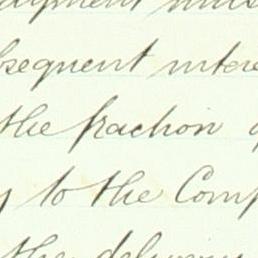 subsequent intere
the fraction o
y to the Comp
the delivery